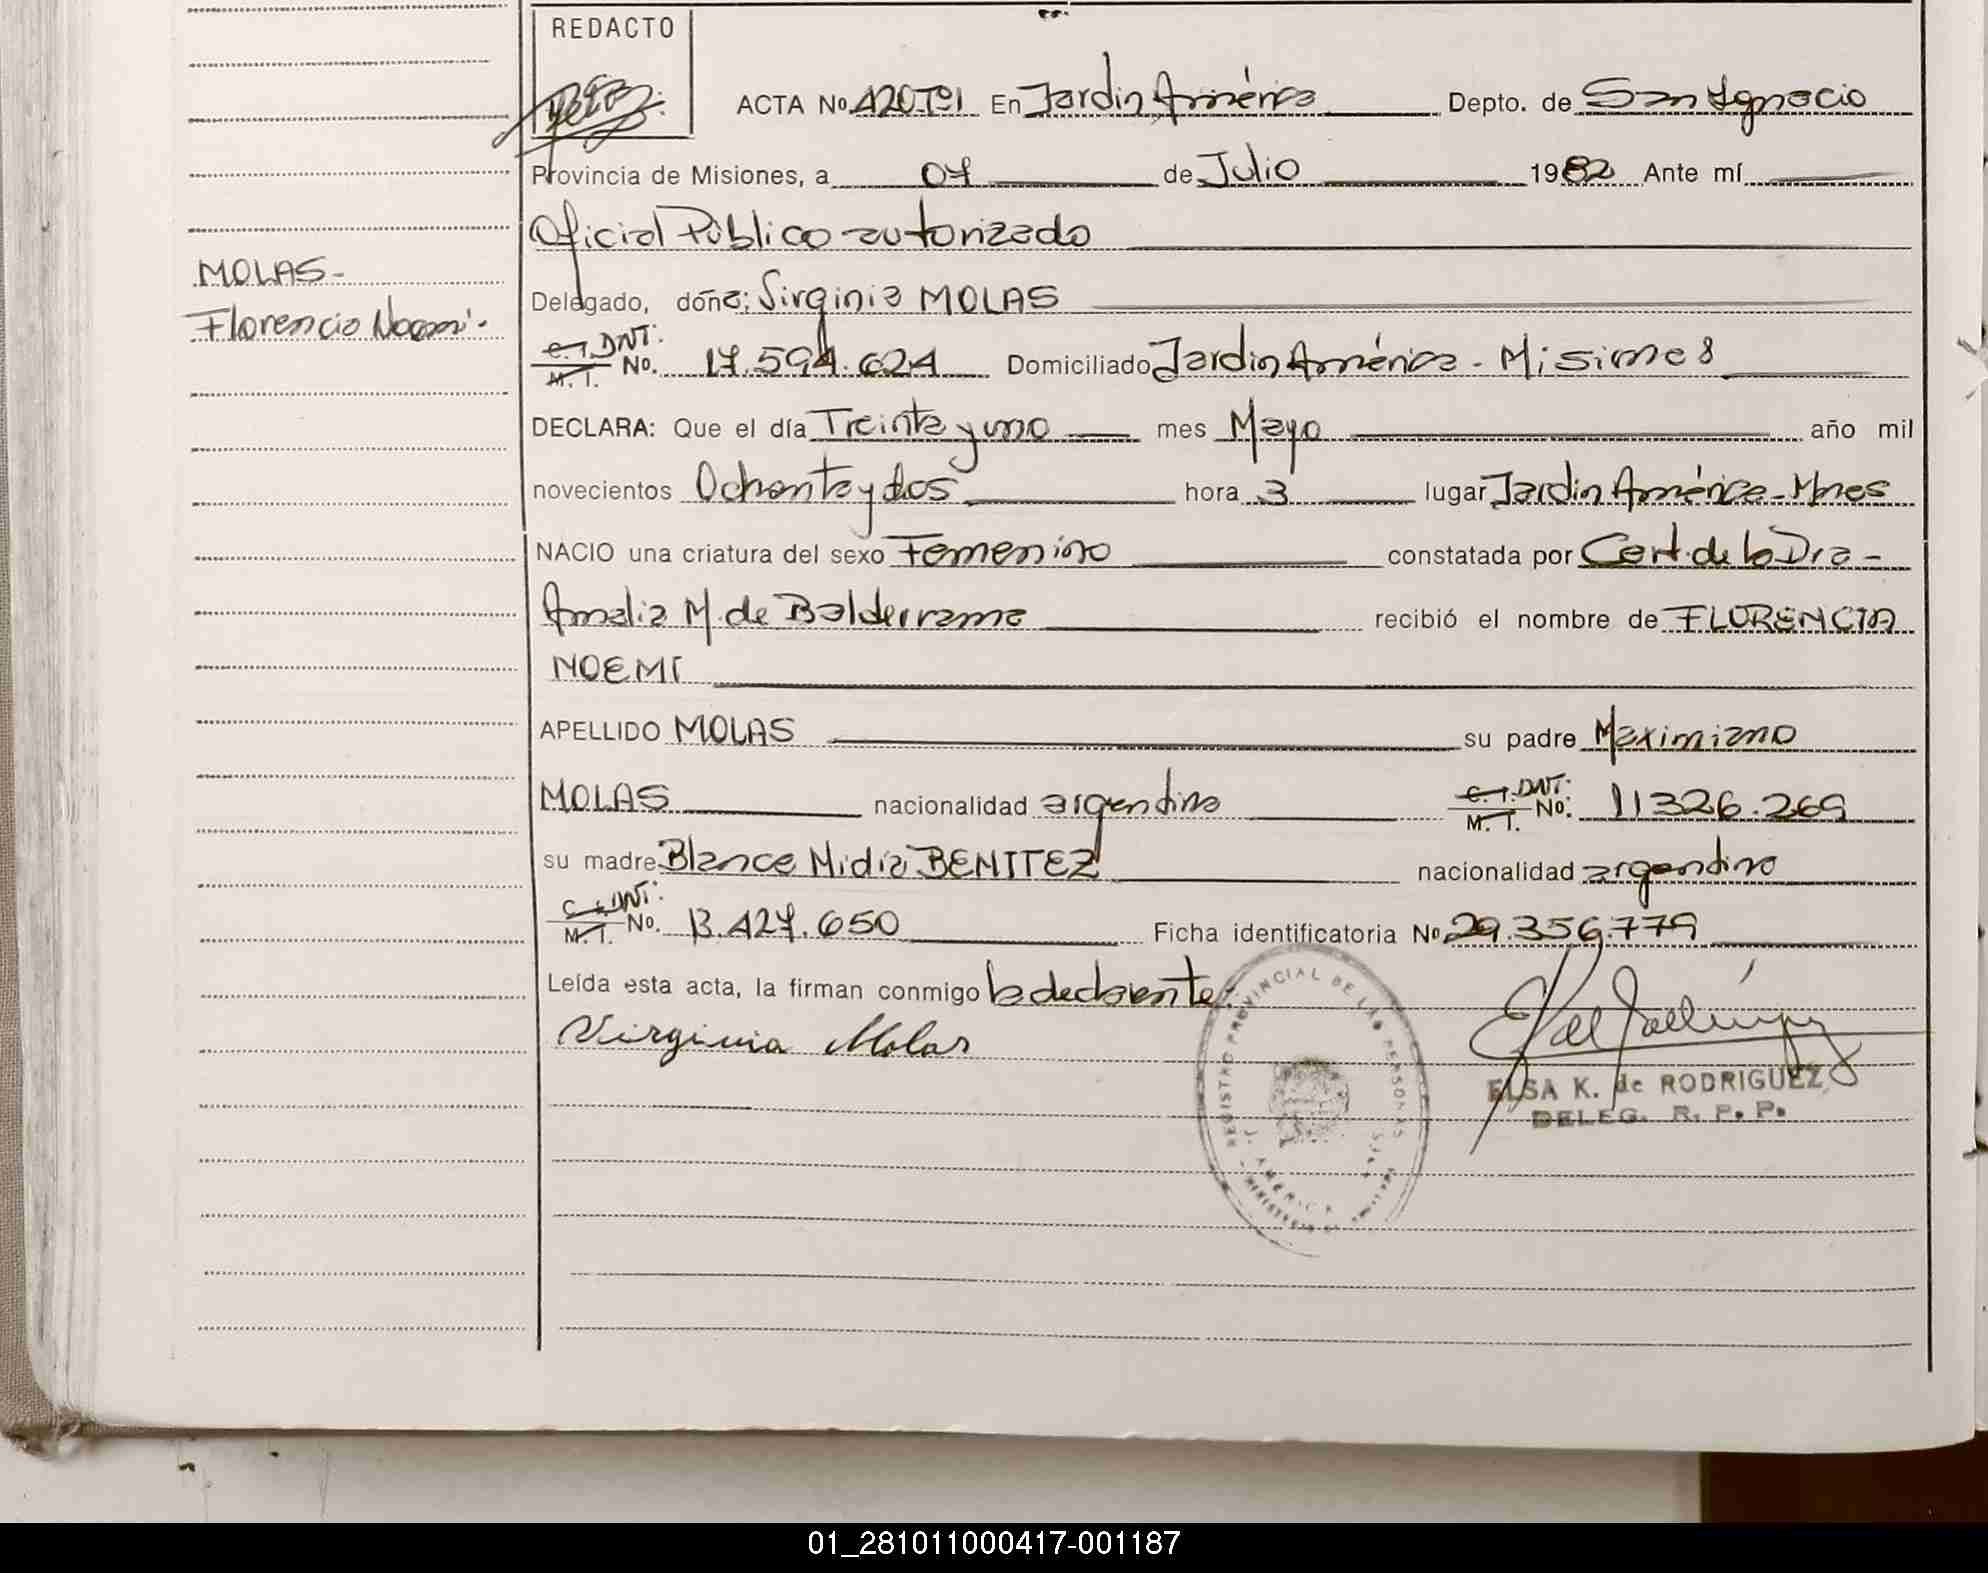 REDACTO
ACTA No. 420 Tº1 En Jardin América Depto. de San Ignacio
Provincia de Misiones, a 07 de Julio 1982 Ante mí
Oficial Público autorizado
MOLAS-
Delegado, doña; Virginia MOLAS
Florencia Noemí-
C.I. DNI: M.I. No. 17.594.624 Domiciliado Jardin América - Misiones
DECLARA: Que el día Treinta y uno mes Mayo año mil
novecientos Ochenta y dos hora 3 lugar Jardin América - Mnes
NACIO una criatura del sexo Femenino constatada por Cert. de la Dra -
Amalia M. de Balderrama recibió el nombre de FLORENCIA
NOEMI
APELLIDO MOLAS su padre Maximiano
MOLAS nacionalidad argentina C.I. DNI: M.I. No: 11326.269
su madre Blanca Nidia BENITEZ nacionalidad argentina
C.I. DNI: M.I. No. 13.427.650 Ficha identificatoria No. 29.356.779
Leída esta acta, la firman conmigo la declarante:
Virginia Molas
REGISTRO PROVINCIAL DE LAS PERSONAS
J. AMERICA
ELSA K. de RODRIGUEZ
DELEG. R. P. P.
01_281011000417-001187